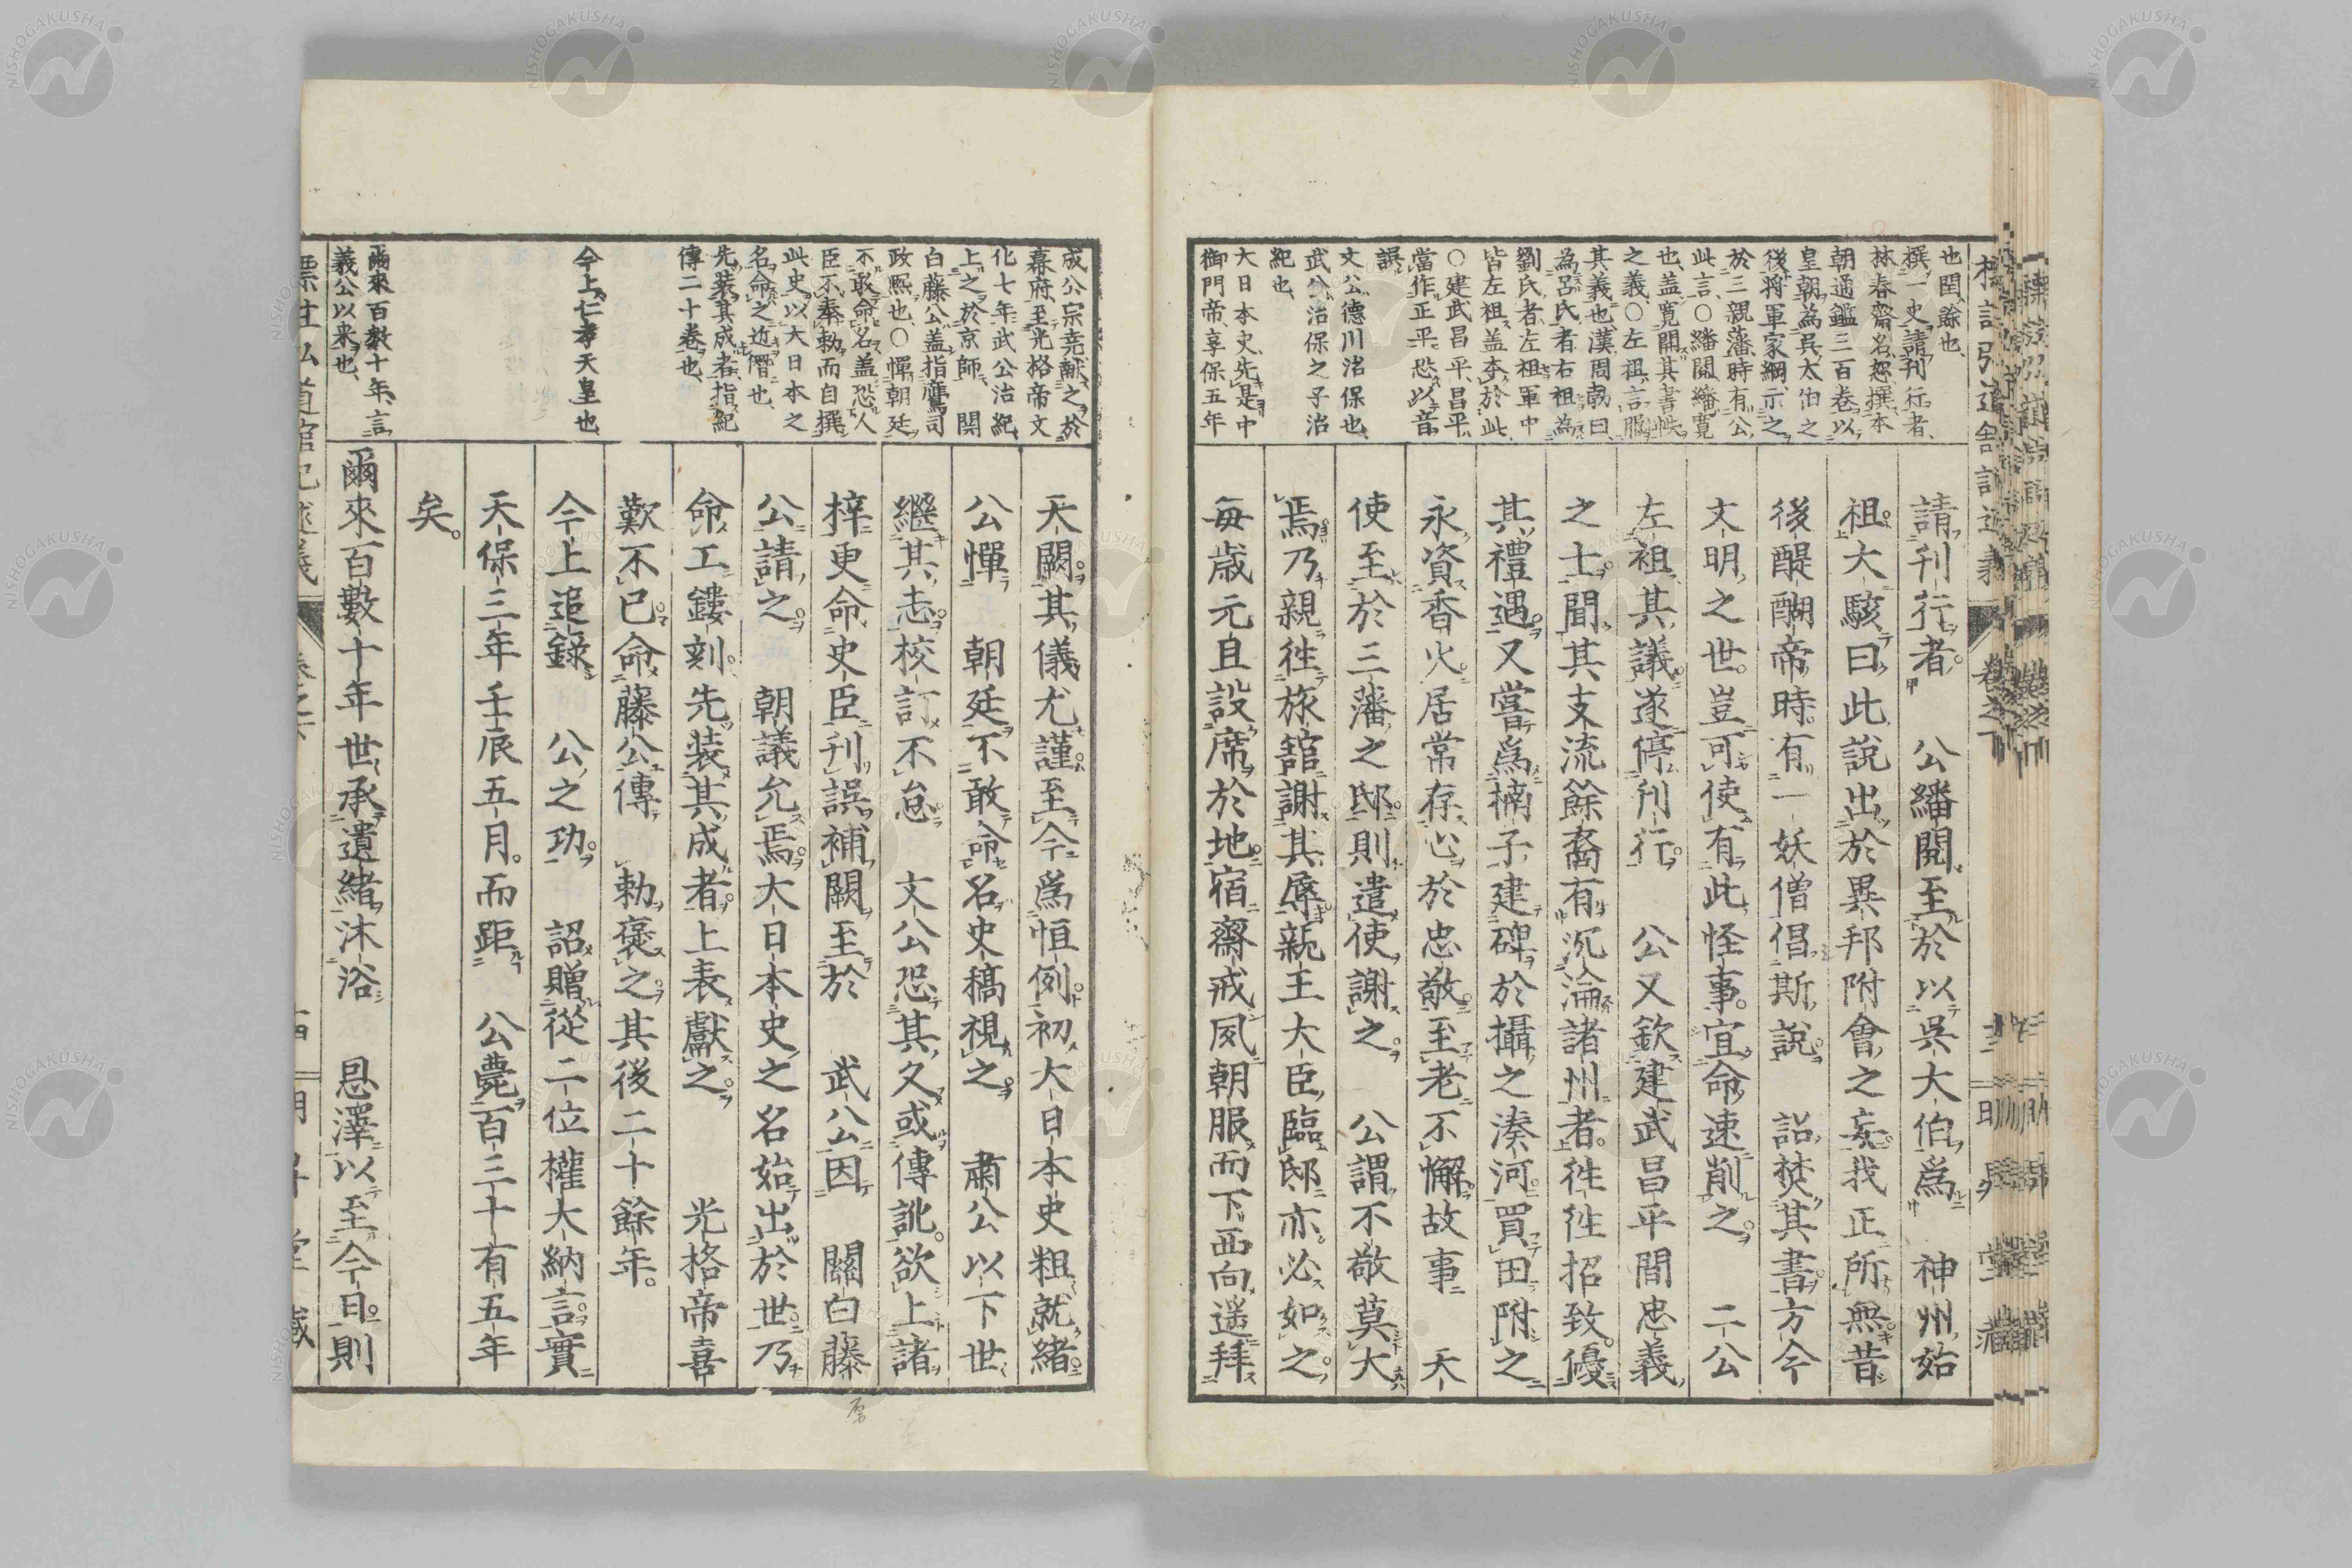 也、閏餘也、
撰一史請刊行者、
林春齋、名恕、撰本
朝通鑑三百卷、以
皇朝為呉太伯之
後、将軍家綱、示之
於三親藩、時有公
此言、○繙閲、繙寛
也、盖寛閲其書帙
之義、○左袒、言服
其義也、漢周勃曰、
為呂氏者右袒、為
劉氏者左袒、軍中
皆左袒、盖本於此、
○建武昌平、昌平
當作正平、恐以音
誤、
文公、德川治保也、
武公、治保之子治
紀也、
大日本史、先是中
御門帝、享保五年
請刊行者。　公繙閲至於以呉大伯爲　神州始
祖。大駭曰此說出於異邦附會之妄。我正所無。昔
後醍醐帝時。有一妖僧倡斯說。　詔焚其書。方今
文明之世。豈可使有此怪事。宜命速削之。　二公
左袒其議。遂停刊行。　公又欽建武昌平間忠義
之士。聞其支流餘裔有沉淪諸州者。徃徃招致。優
其禮遇。又嘗爲楠子建碑於攝之湊河。買田附之
永資香火。居常存心於忠敬。至老不懈。故事　天
使至於三藩之邸。則遣使謝之。　公謂不敬莫大
焉。乃親徃旅舘謝其辱。親王大臣臨邸亦必如之。
每歳元旦設席於地。宿齋戒夙朝服而下。西向遥拜
成公宗堯献之於
幕府、至光格帝文
化七年、武公治紀、
上之於京師、　関
白藤公、盖指鷹司
政熙也、○憚朝廷
不敢命名、盖恐人
臣不奉勅而自撰
此史、以大日本之
名命之近僭也、
先装其成者、指紀
傳二十卷也、
今上、仁孝天皇也、
爾來百數十年、言
義公以來也、
天闕。其儀尤謹。至今爲恒例。初大日本史粗就緒。
公憚　朝廷不敢命名。史稿視之。　肅公以下世
繼其志。校訂不怠。　文公恐其久或傳訛。欲上諸
梓。更命史臣刊誤補闕。至於　武公因　關白藤
公請之。　朝議允焉。大日本史之名始出於世。乃
命工鏤刻。先装其成者。上表獻之。　光格帝喜
歎不已。命藤公傳　勅褒之。其後二十餘年。
今上追錄　公之功。　詔贈從二位權大納言。實
天保三年壬辰五月。而距　公薨百三十有五年
矣。
爾來百數十年世承遺緒沐浴　恩澤以至今日。則